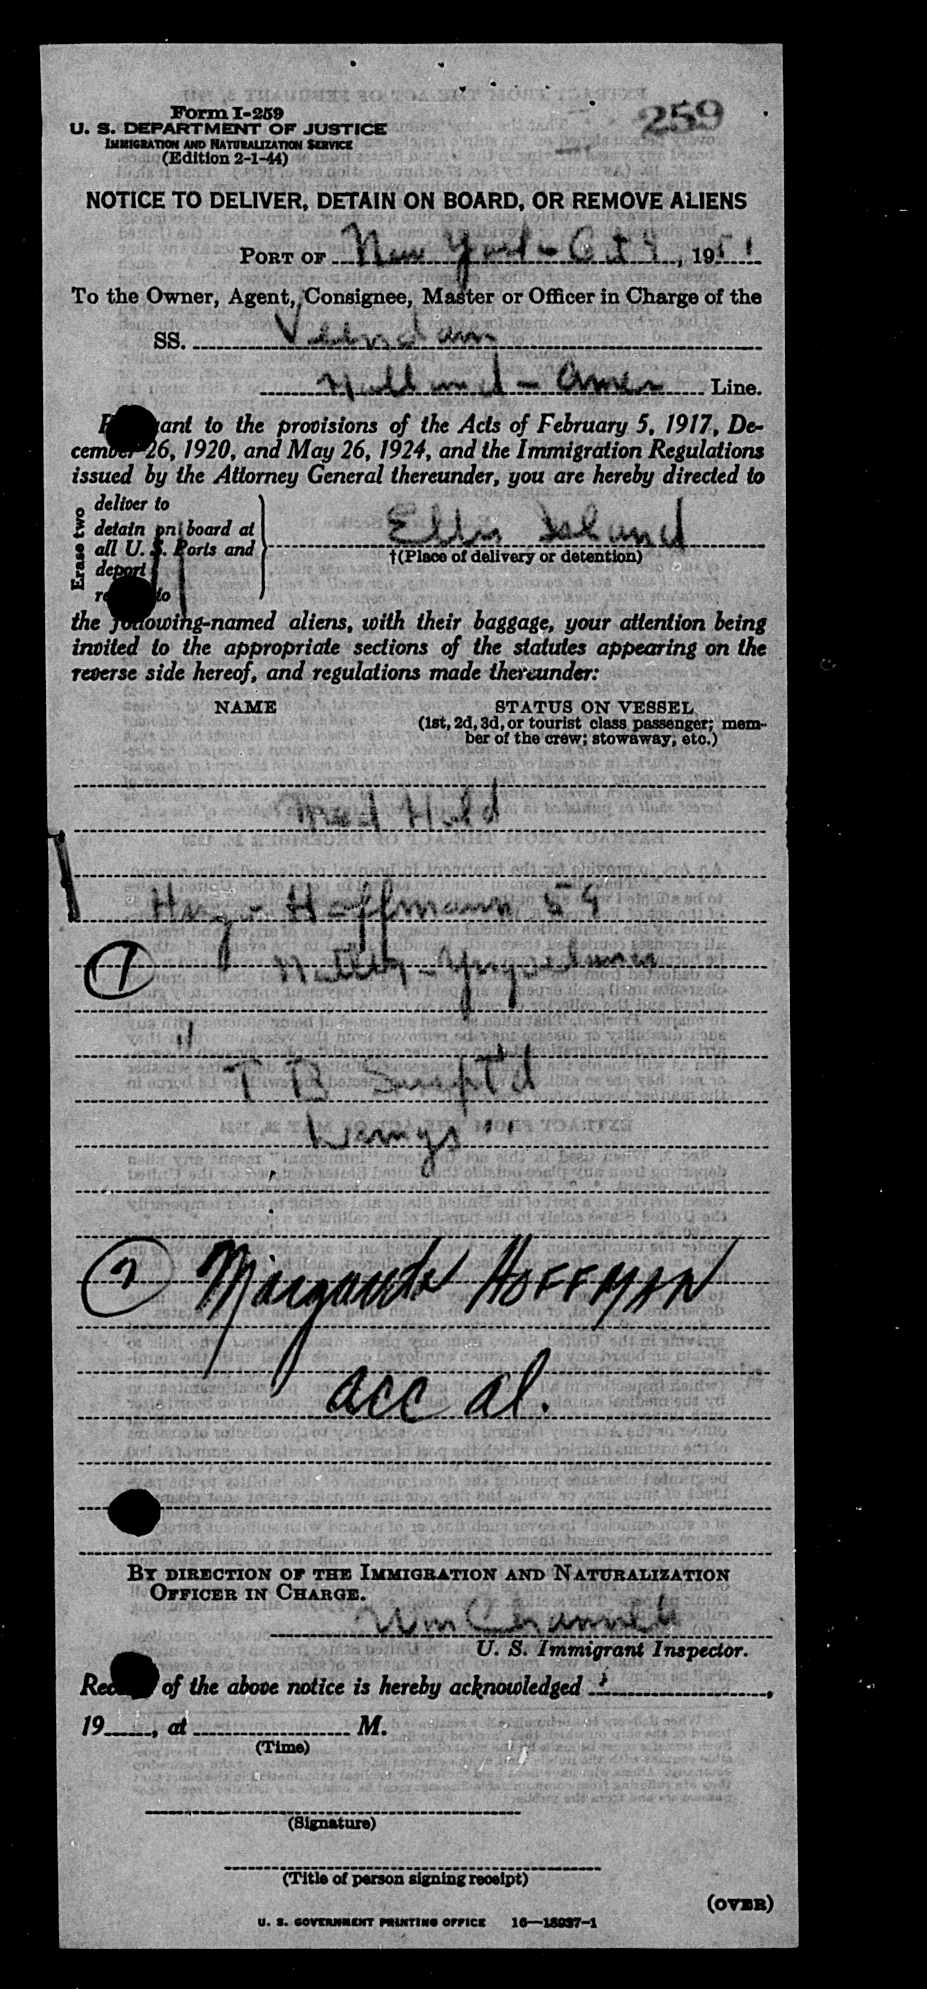 259
Form I-259
U. S. DEPARTMENT OF JUSTICE
IMMIGRATION AND NATURALIZATION SERVICE
(Edition 2-1-44)
NOTICE TO DELIVER, DETAIN ON BOARD, OR REMOVE ALIENS
PORT OF New York - Oct 9, 1951
To the Owner, Agent, Consignee, Master or Officer in Charge of the
SS. Veendam
Holland - Amer Line.
ant to the provisions of the Acts of February 5, 1917, De-
cember 26, 1920, and May 26, 1924, and the Immigration Regulations
issued by the Attorney General thereunder, you are hereby directed to
Erase two
deliver to
detain on board at
all U. S. Ports and
deport
to
Ellis Island
†(Place of delivery or detention)
the following-named aliens, with their baggage, your attention being
invited to the appropriate sections of the statutes appearing on the
reverse side hereof, and regulations made thereunder:
NAME
STATUS ON VESSEL
(1st, 2d, 3d, or tourist class passenger; mem-
ber of the crew; stowaway, etc.)
Med Hold
Hugo Hoffmann 59
1
" T B Suspt'd
Lungs "
2 Margarete HOFFMAN
acc al.
BY DIRECTION OF THE IMMIGRATION AND NATURALIZATION
OFFICER IN CHARGE.
Wm
U. S. Immigrant Inspector.
of the above notice is hereby acknowledged
19____, at ____ M.
(Time)
(Signature)
(Title of person signing receipt)
(OVER)
U. S. GOVERNMENT PRINTING OFFICE 16—18037-1